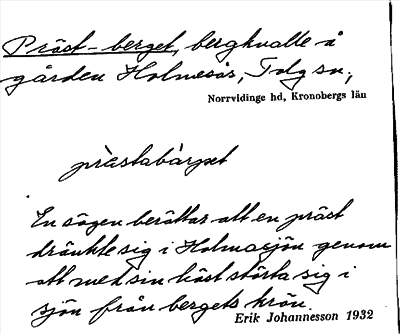 Präst-berget, bergkulle å
gården Holmesås, Tolg sn,
Norrvidinge hd, Kronobergs län
prästabärget
En sägen berättar att en präst
dränkte sig i Holmasjön genom
att med sin häst störta sig i
sjön från bergets krön.
Erik Johannesson 1932